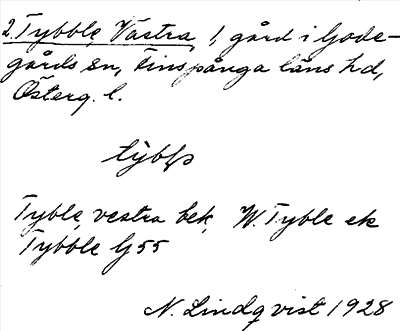 2. Tybble, Västra, 1, gård i Gode-
gårds sn, Finspånga läns hd,
Österg. l.
Tyble, vestra bek, W. Tyble ek
Tybble G 55
N. Lindqvist 1928